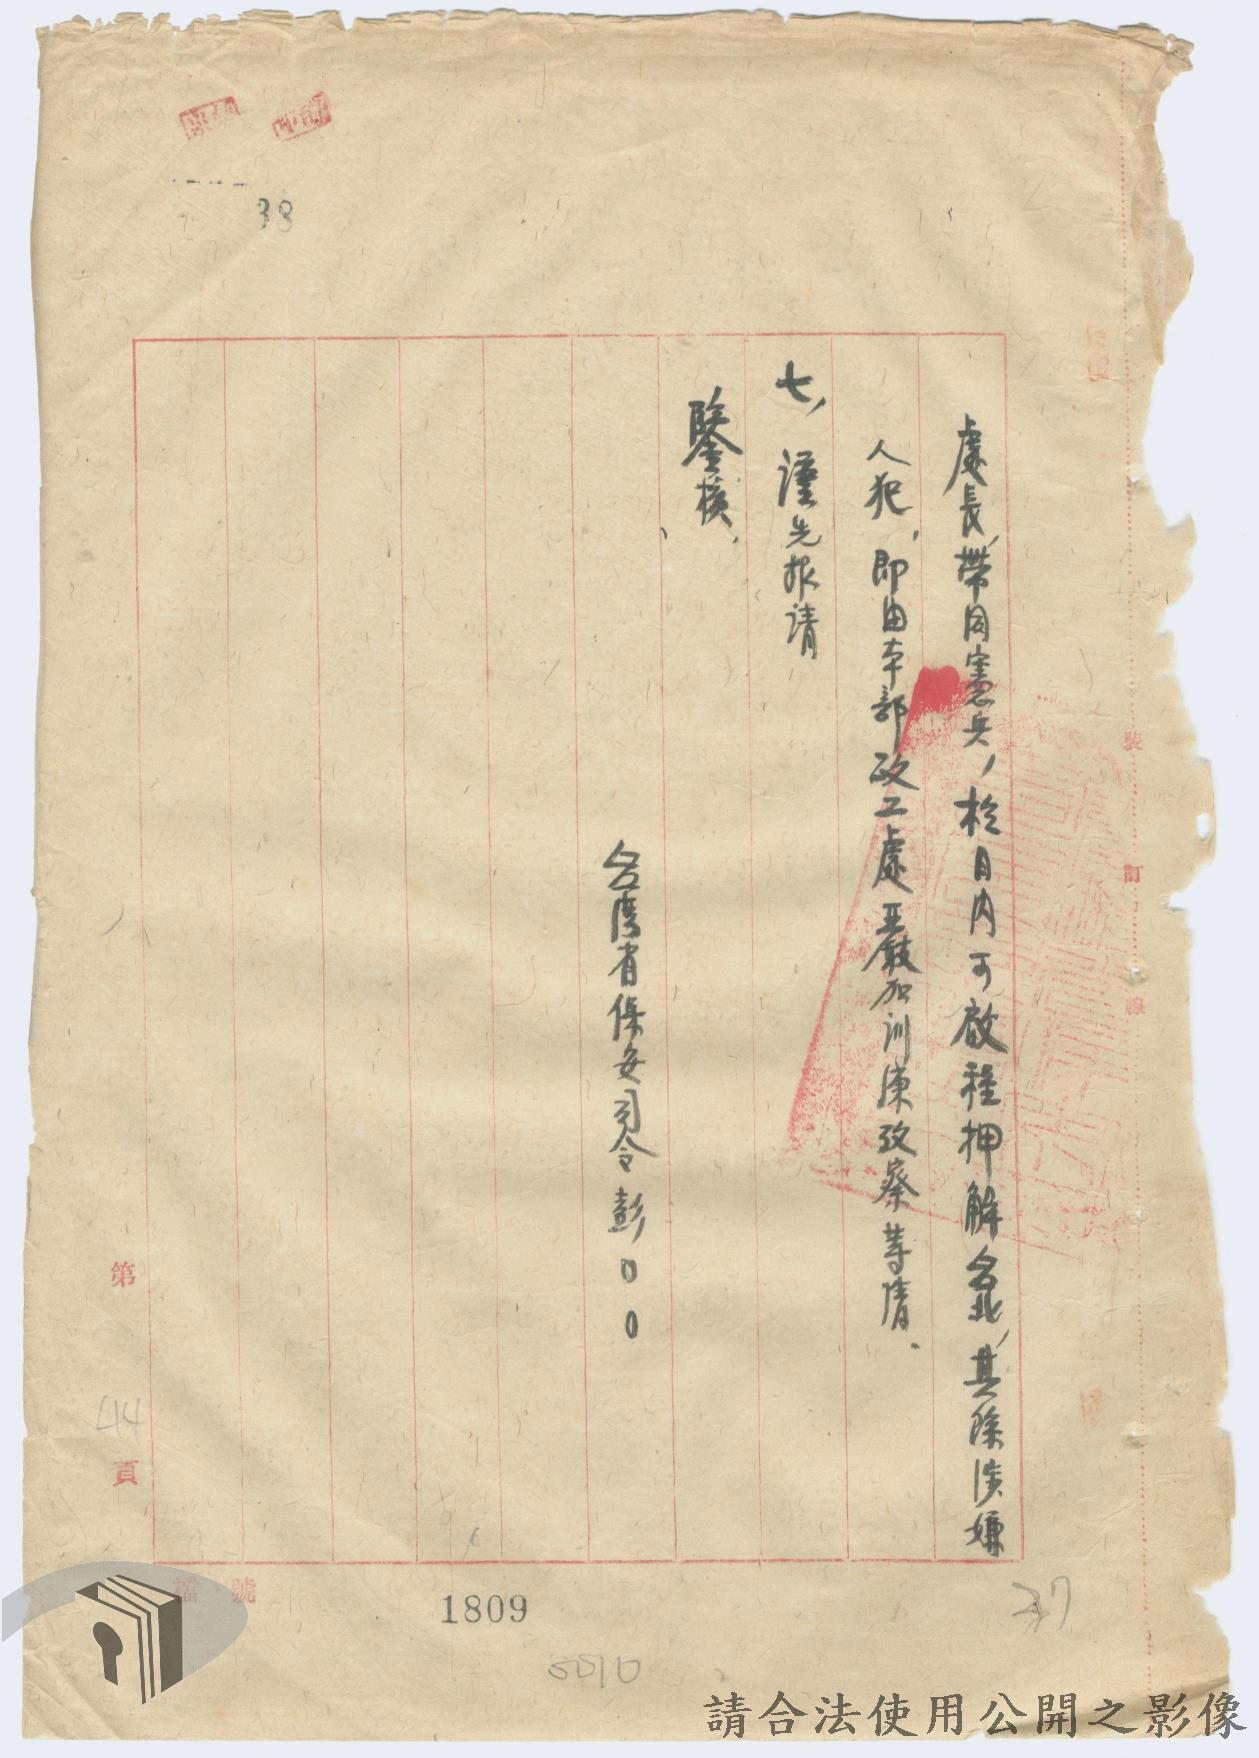 處長，帶同憲兵，於日內可啟程押解台北，其除涉嫌
人犯，即由本部政工處嚴加訓凍攷察等情、
七，謹先报请
鑒核、
台湾省保安司令彭００
裝訂線
第44頁
檔號
38
1809
5510
37
請合法使用公開之影像